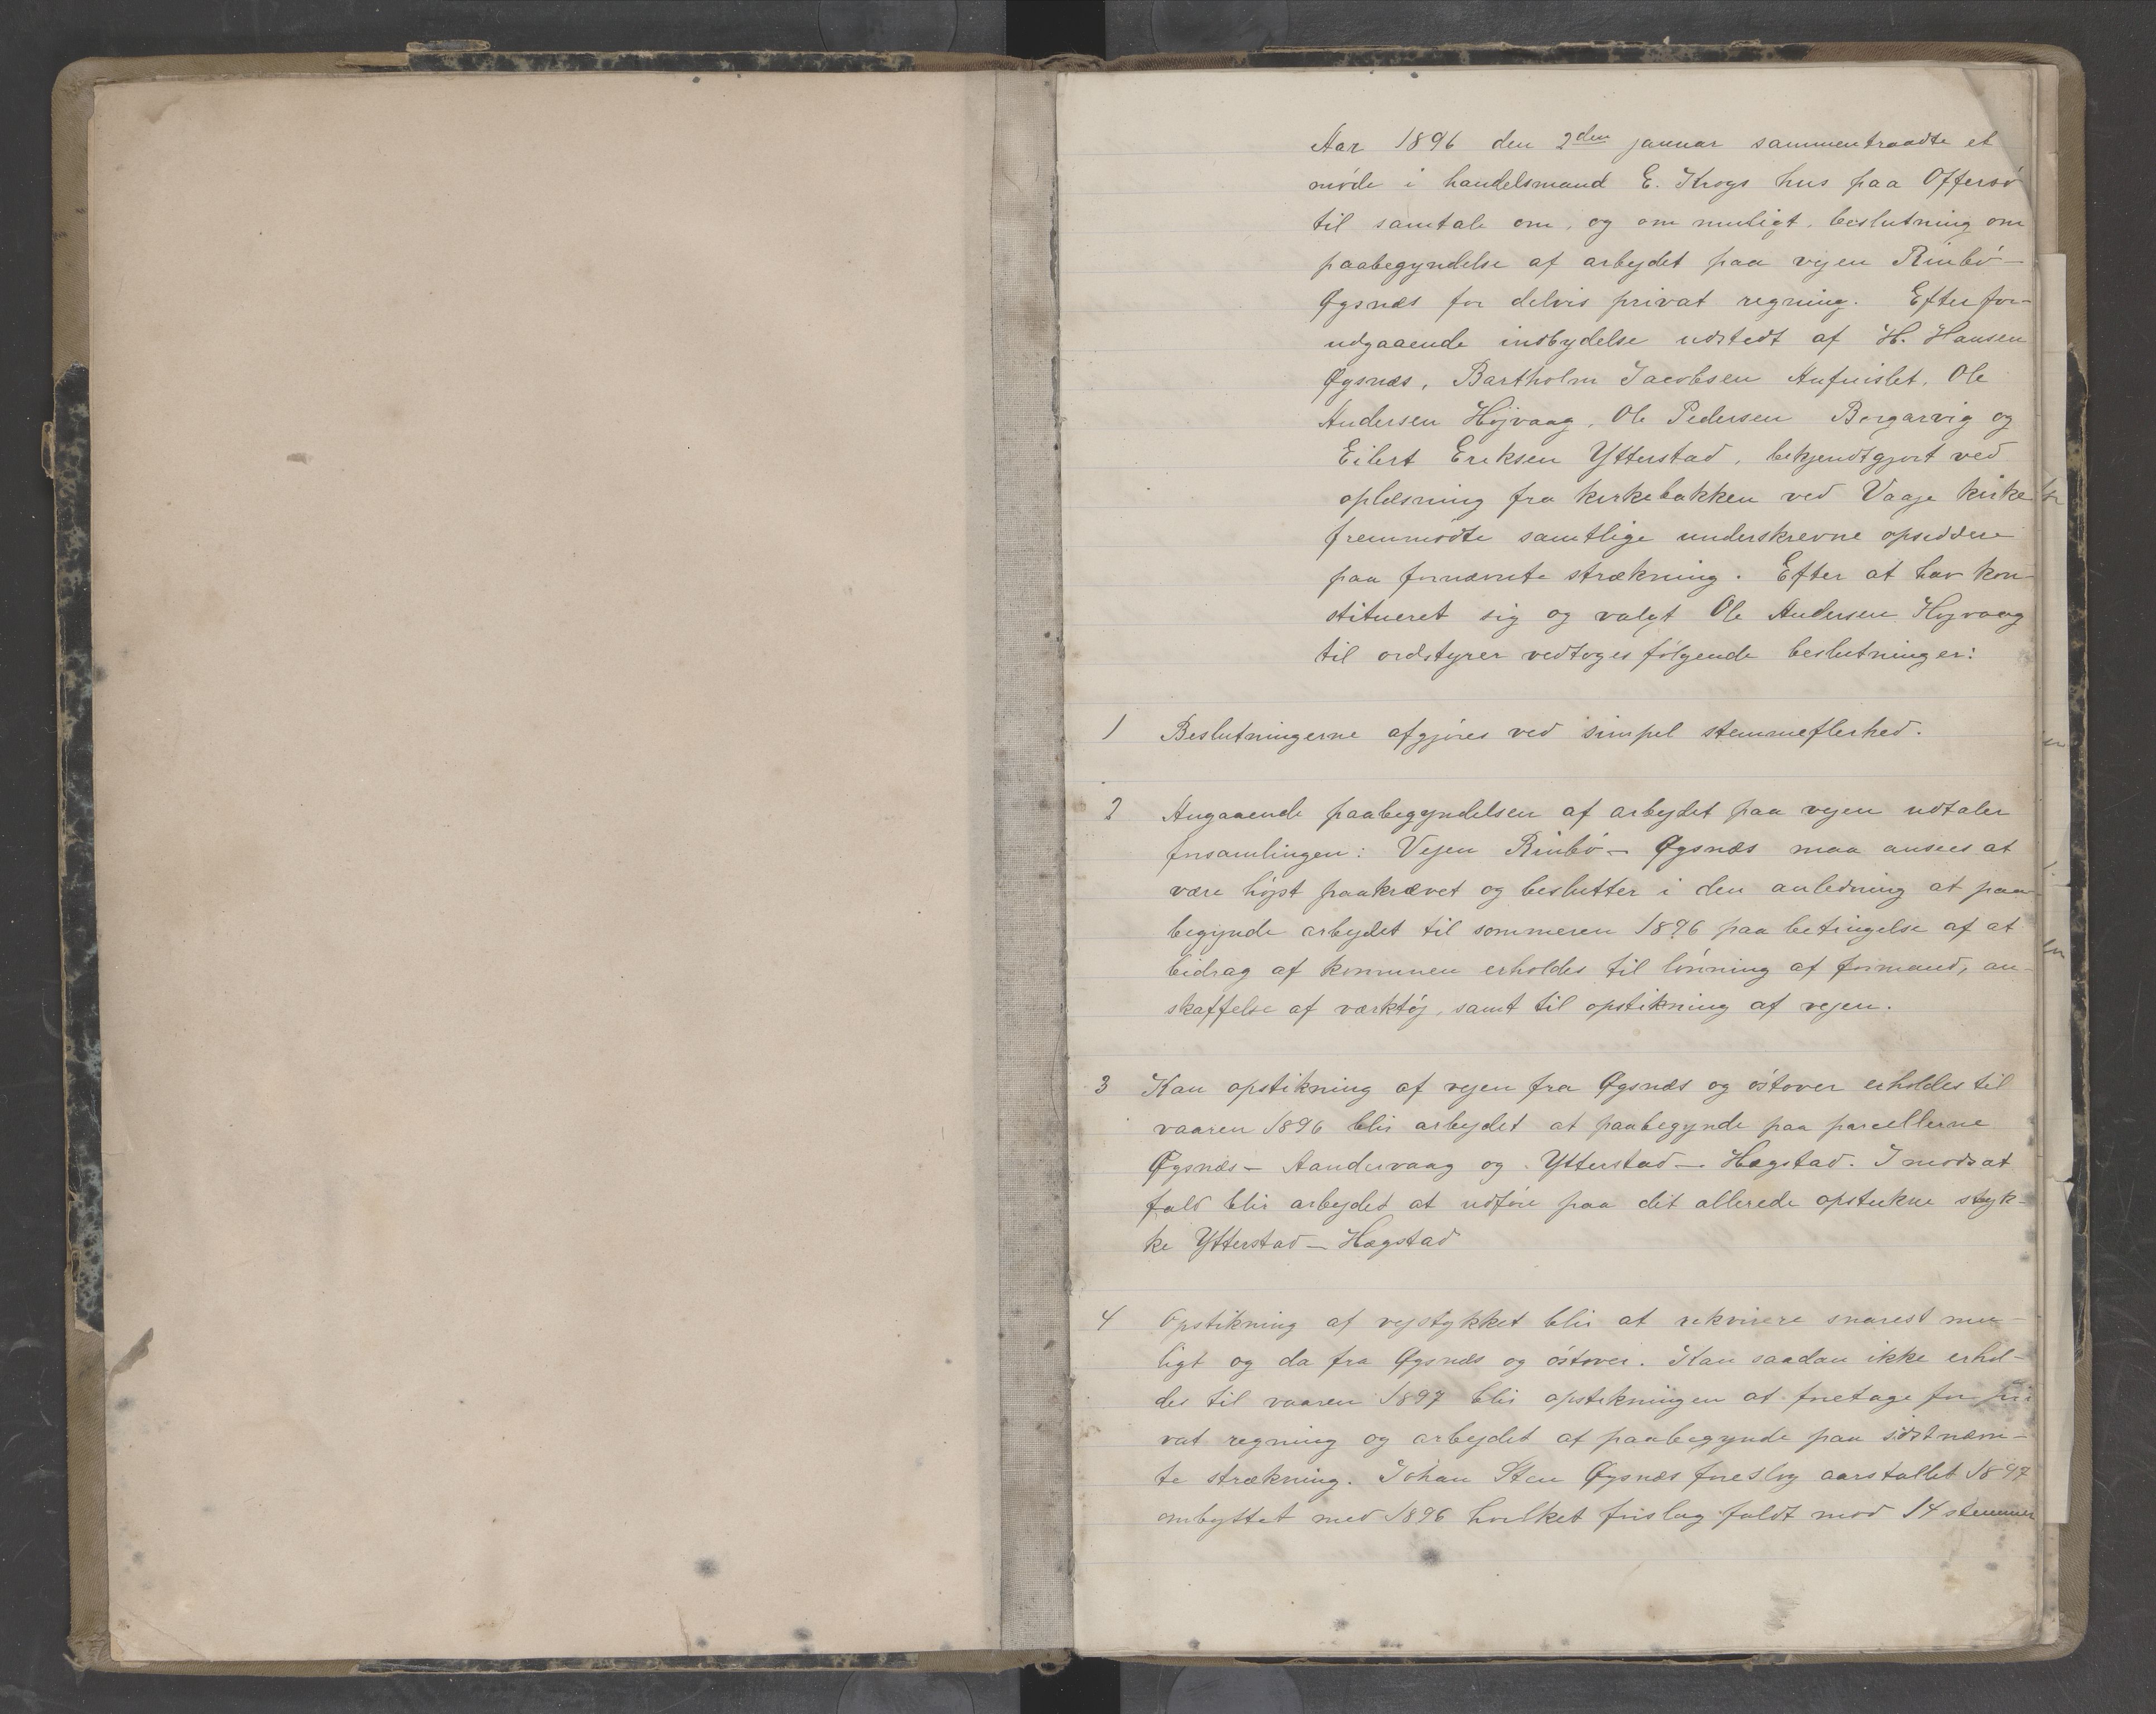 Aar 1896 den 2den januar sammentraadte et
møde i handelsmand E. Krogs hus paa Offersø
til samtale om, og om muligt, beslutning om
paabegyndelse af arbejdet paa vejen Rinbø-
Øgsnæs for delvis privat regning. Efter for-
udgaaende indbydelse udstedt af H. Hansen
Øgsnæs, Bartholm Jacobsen Ole
Andersen Højvaag, Ole Pedersen Borgarvig og
Eilert Eriksen Ytterstad, bekjendtgjort ved
oplæsning fra kirkebakken ved Vaaje kirke
fremmødte samtlige underskrevne opsiddere
paa fornævnte strækning. Efter at hav kon-
stitueret sig og valgt Ole Andersen Højvaag
til ordstyrer vedtoges følgende beslutninger:
1 Beslutningerne afgjøres ved simpel stemmeflerhed.
2 Angaaende paabegyndelsen af arbejdet paa vejen udtaler
forsamlingen: Vejen Rinbø- Øgsnæs maa ansees at
være højst paakrævet og beslutter i den anledning at paa-
begynde arbejdet til sommeren 1896 paa betingelse af at
bidrag af kommunen erholdes til lønning af formand, an-
skaffelse af værktøj, samt til opstikning af vejen.
3 Kan opstikning af vejen fra Øgsnæs og østover erholdes til
vaaren 1896 blir arbejdet at paabegynde paa parcellerne
Øgsnæs- Aandervaag og Ytterstad- Hægstad. I modsat
fald blir arbejdet at udføre paa det allerede opstukne styk-
ke Ytterstad- Hægstad
4 Opstikning af vejstykket blir at rekvirere snarest mu-
ligt og da fra Øgsnæs og østover. Kan saadan ikke erhol-
des til vaaren 1897 blir opstikningen at foretage for pri-
vat regning og arbejdet at paabegynde paa sidstnævn-
te strækning. Johan Sten Øgsnæs foreslog aarstallet 1897
ombyttet med 1896 hvilket forslag faldt mod 14 stemmer